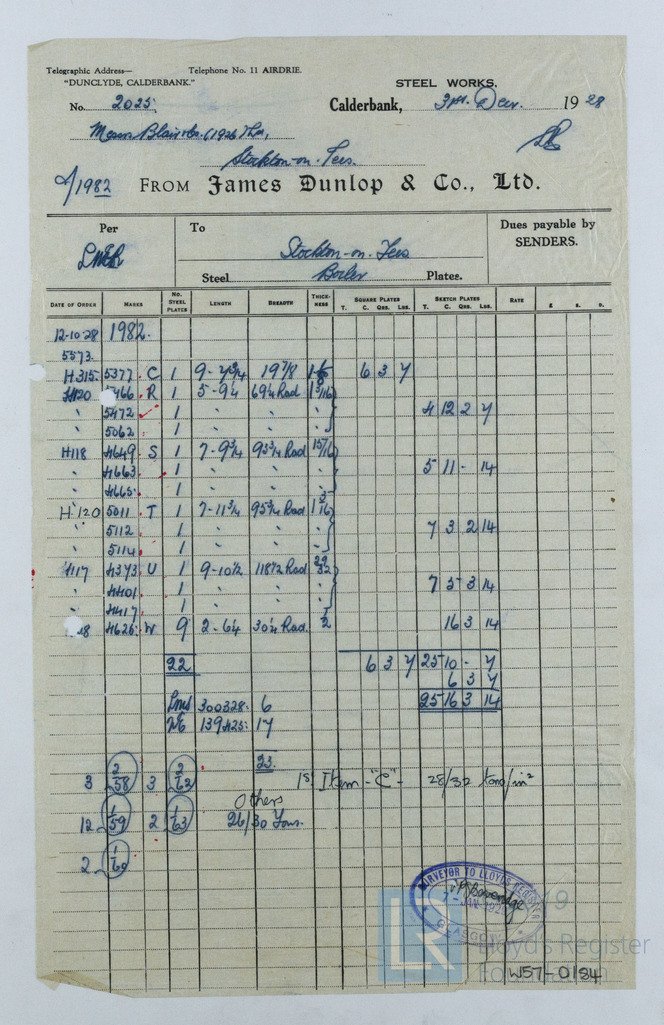 Telegraphic Address— Telephone No. 11 AIRDRIE.
"DUNCLYDE, CALDERBANK." STEEL WORKS.
No. 2025 Calderbank, 3rd Decr. 1928
Messrs Blairs (1926 Ltd,
Stockton-on-Tees.
O/1982 FROM James Dunlop & Co., Ltd.
Per To Dues payable by
SENDERS.
LNER Stockton-on-Tees
Steel Boiler Plates.
DATE OF ORDER MARKS NO. STEEL PLATES LENGTH BREADTH THICKNESS SQUARE PLATES T. C. Qrs. Lbs. SKETCH PLATES T. C. Qrs. Lbs. RATE £ s. D.
12-10-28 1982.
5573.
H315. 5377 C 1 9-4¾ 19⅞ 6 3 7
H120 5466 R 1 5-9¼ 69¼ Rad 1 3/16
" 5472 1 " " 4 12 2 7
" 5062 1 " "
H118 4649 S 1 7-9¾ 93¾ Rad 15/16
" 4663 1 " " 5 11 - 14
" 4665 1 " "
H120 5011 T 1 7-11¾ 95¾ Rad 1 3/16
" 5112 1 " " 7 3 2 14
" 5114 1 " "
H117 4393 U 1 9-10½ 118½ Rad 29/32
" 4401 1 " " 7 5 3 14
" 4417 1 " "
4626 W 9 2-6¼ 30¼ Rad. ½ 16 3 14
22 6 3 7 25 10 - 7
6 3 7
25 16 3 14
Lms 300328: 6
NE 139425: 17
23.
3 2/58 3 2/62 1st Item -"C"- 28/32 tons/in²
Others
12 1/59 2 1/63 26/30 Tons.
2 1/60
SURVEYOR TO LLOYD'S REGISTER
7-JAN 1929
GLASGOW
LR
Lloyd's Register
Foundation
W57-0184